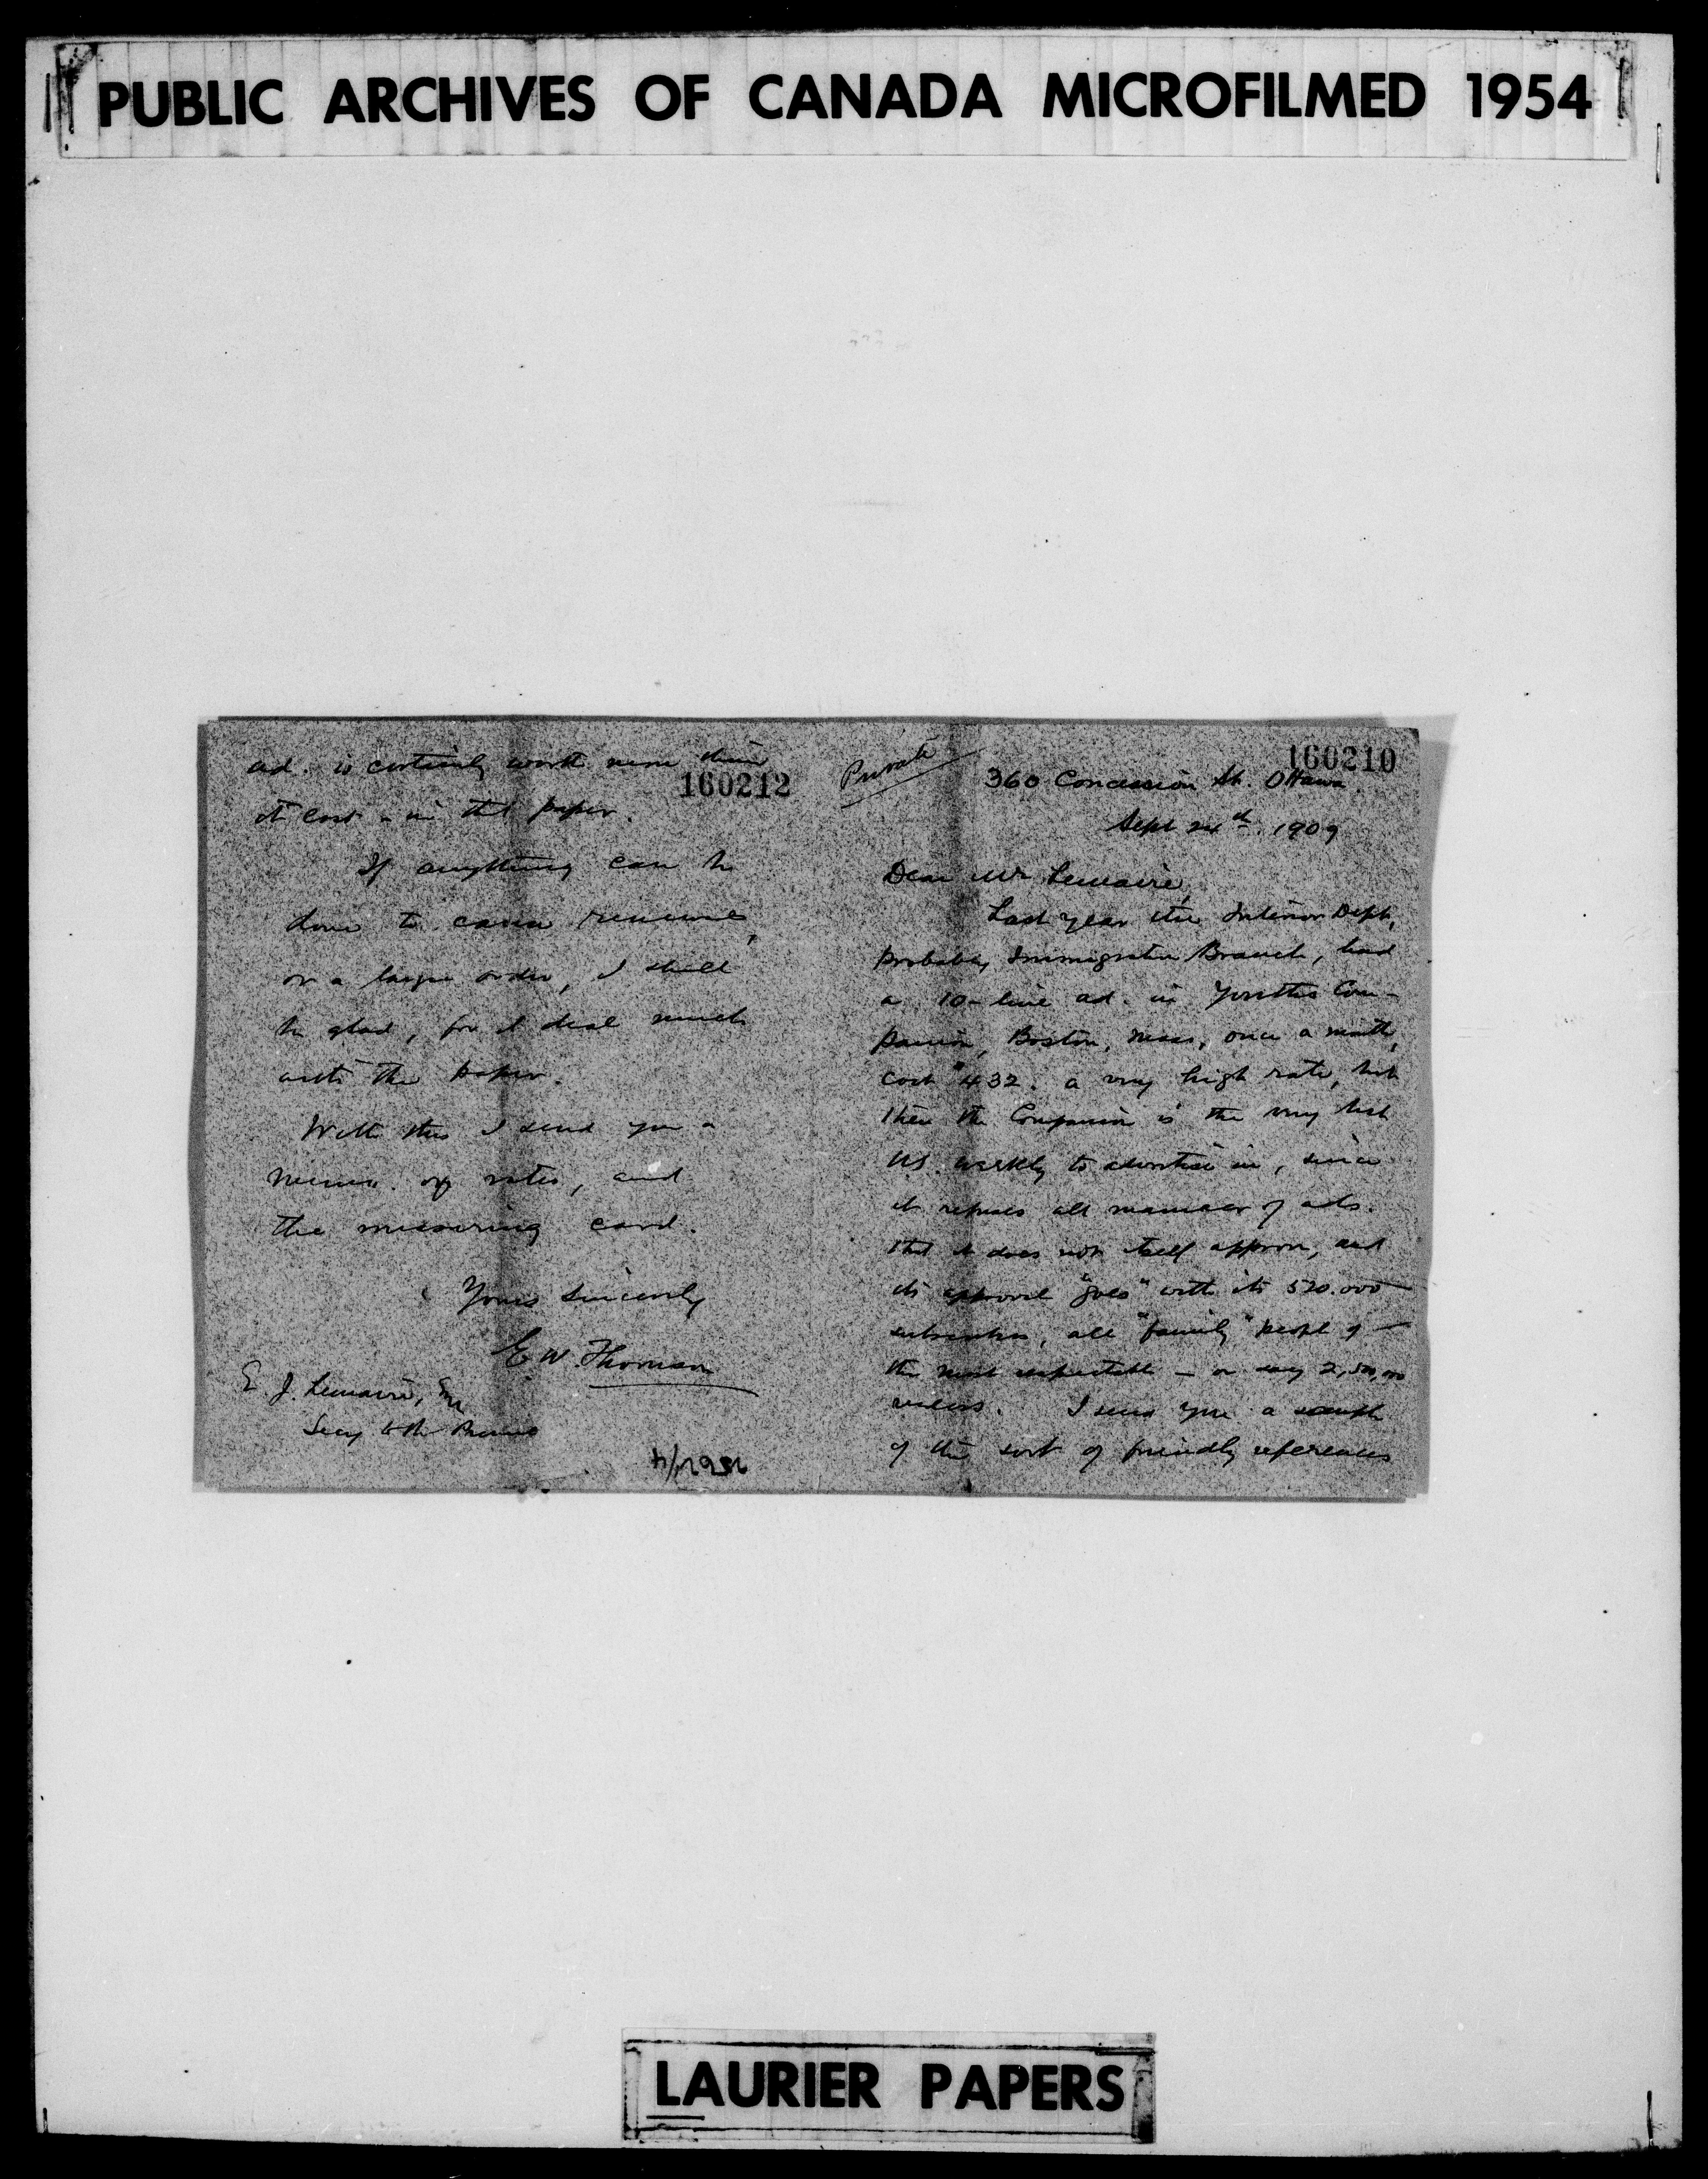 PUBLIC ARCHIVES OF CANADA MICROFILMED 1954
160210
Private
360 Concession St. Ottawa
Sept 24th. 1909
Dear Mr Lemaire,
Last year the Interior Dept,
probably Immigration Branch, had
a 10-line ad. in Youths Com-
panion, Boston, Mass, once a month,
cost $432. a very high rate, but
then the Companion is the very best
US. weekly to advertise in, since
it refuses all manner of ads.
that it does not itself approve, and
its approval "goes" with its 520.000
subscribers, all "family" people of
the most respectable – or say 2,500,000
readers. I send you a sample
of the sort of friendly references
160212
ad. is certainly worth more than
it cost – in that paper.
If anything can be
done to cause renewal,
or a larger order, I shall
be glad, for I deal much
with the paper.
With this I send you a
memo. of rates, and
the measuring card.
Yours sincerely
E W. Thomson
E J. Lemaire, Esq
Secy to the Premier
LAURIER PAPERS